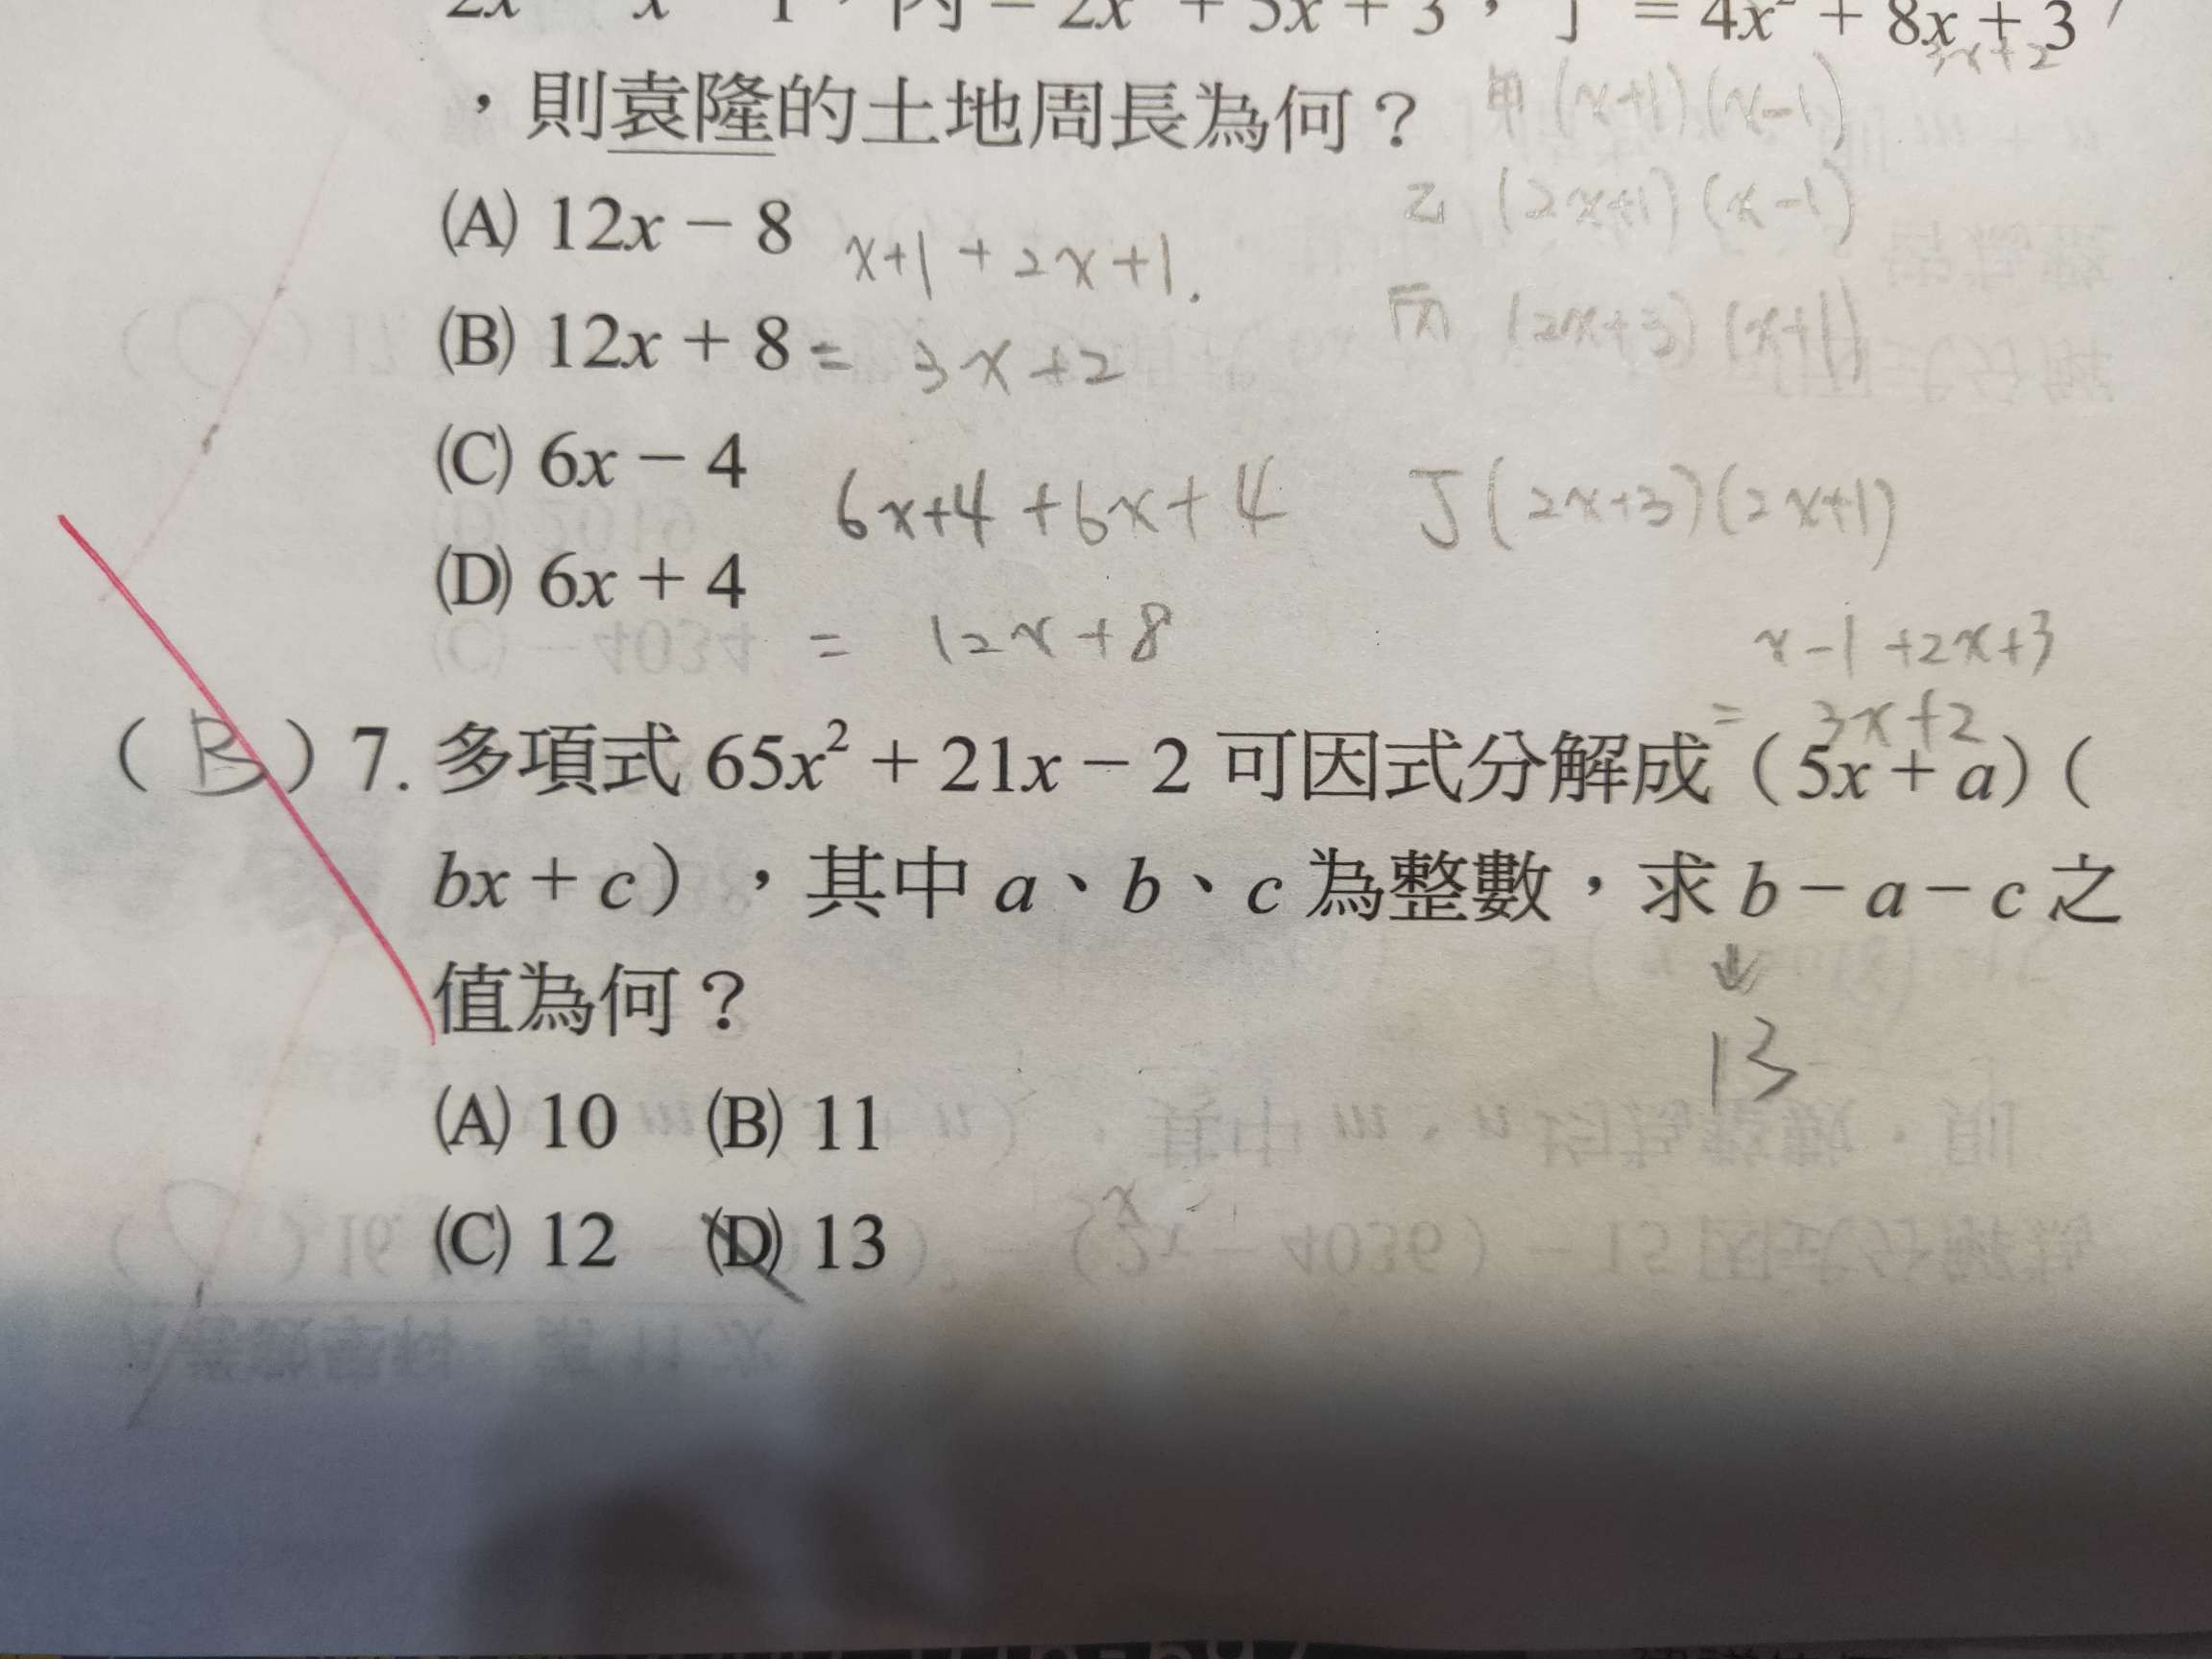 丙 = 2x² + 5x + 3,丁 = 4x² + 8x + 3
3x+2
,則袁隆的土地周長為何?
甲 (x+1)(x-1)
(A) 12x - 8
乙 (2x+1)(x-1)
x+1+2x+1
(B) 12x + 8
= 3x+2
丙 (2x+3)(x+1)
(C) 6x - 4
6x+4+6x+4
丁(2x+3)(2x+1)
(D) 6x + 4
= 12x+8
x-1+2x+3
= 3x+2
( B ) 7. 多項式 65x² + 21x - 2 可因式分解成(5x + a)(
bx + c),其中 a、b、c 為整數,求 b - a - c 之
值為何?
13
(A) 10 (B) 11
(C) 12 (D) 13